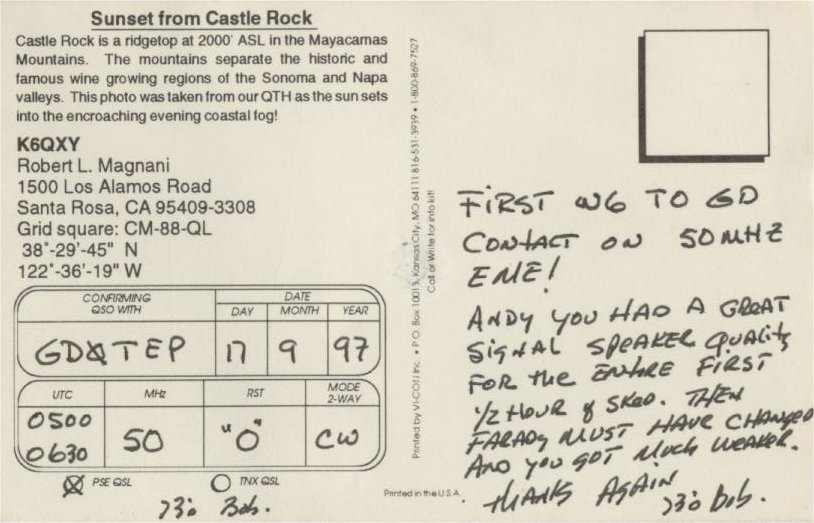 Sunset from Castle Rock
Castle Rock is a ridgetop at 2000' ASL in the Mayacamas
Mountains. The mountains separate the historic and
famous wine growing regions of the Sonoma and Napa
valleys. This photo was taken from our QTH as the sun sets
into the encroaching evening coastal fog!
K6QXY
Robert L. Magnani
1500 Los Alamos Road
Santa Rosa, CA 95409-3308
Grid square: CM-88-QL
38°-29'-45" N
122°-36'-19" W
CONFIRMING
QSO WITH
DATE
DAY MONTH YEAR
GDØTEP 17 9 97
UTC MHz RST MODE
2-WAY
0500
0630
50 "O" CW
PSE QSL TNX QSL
73's Bob.
Printed by VI-COTI Inc. • P.O. Box 10013, Kansas City, MO 64111 816-531-3939 • 1-800-869-7527
Call or Write for info kit!
Printed in the U.S.A.
FIRST W6 TO GD
CONTACT ON 50 MHZ
EME!
ANDY YOU HAD A GREAT
SIGNAL SPEAKER QUALITY
FOR the ENTIRE FIRST
1/2 HOUR of SKED. THEN
FARADY MUST HAVE CHANGED
AND YOU GOT Much WEAKER.
THANKS AGAIN
73's Bob.